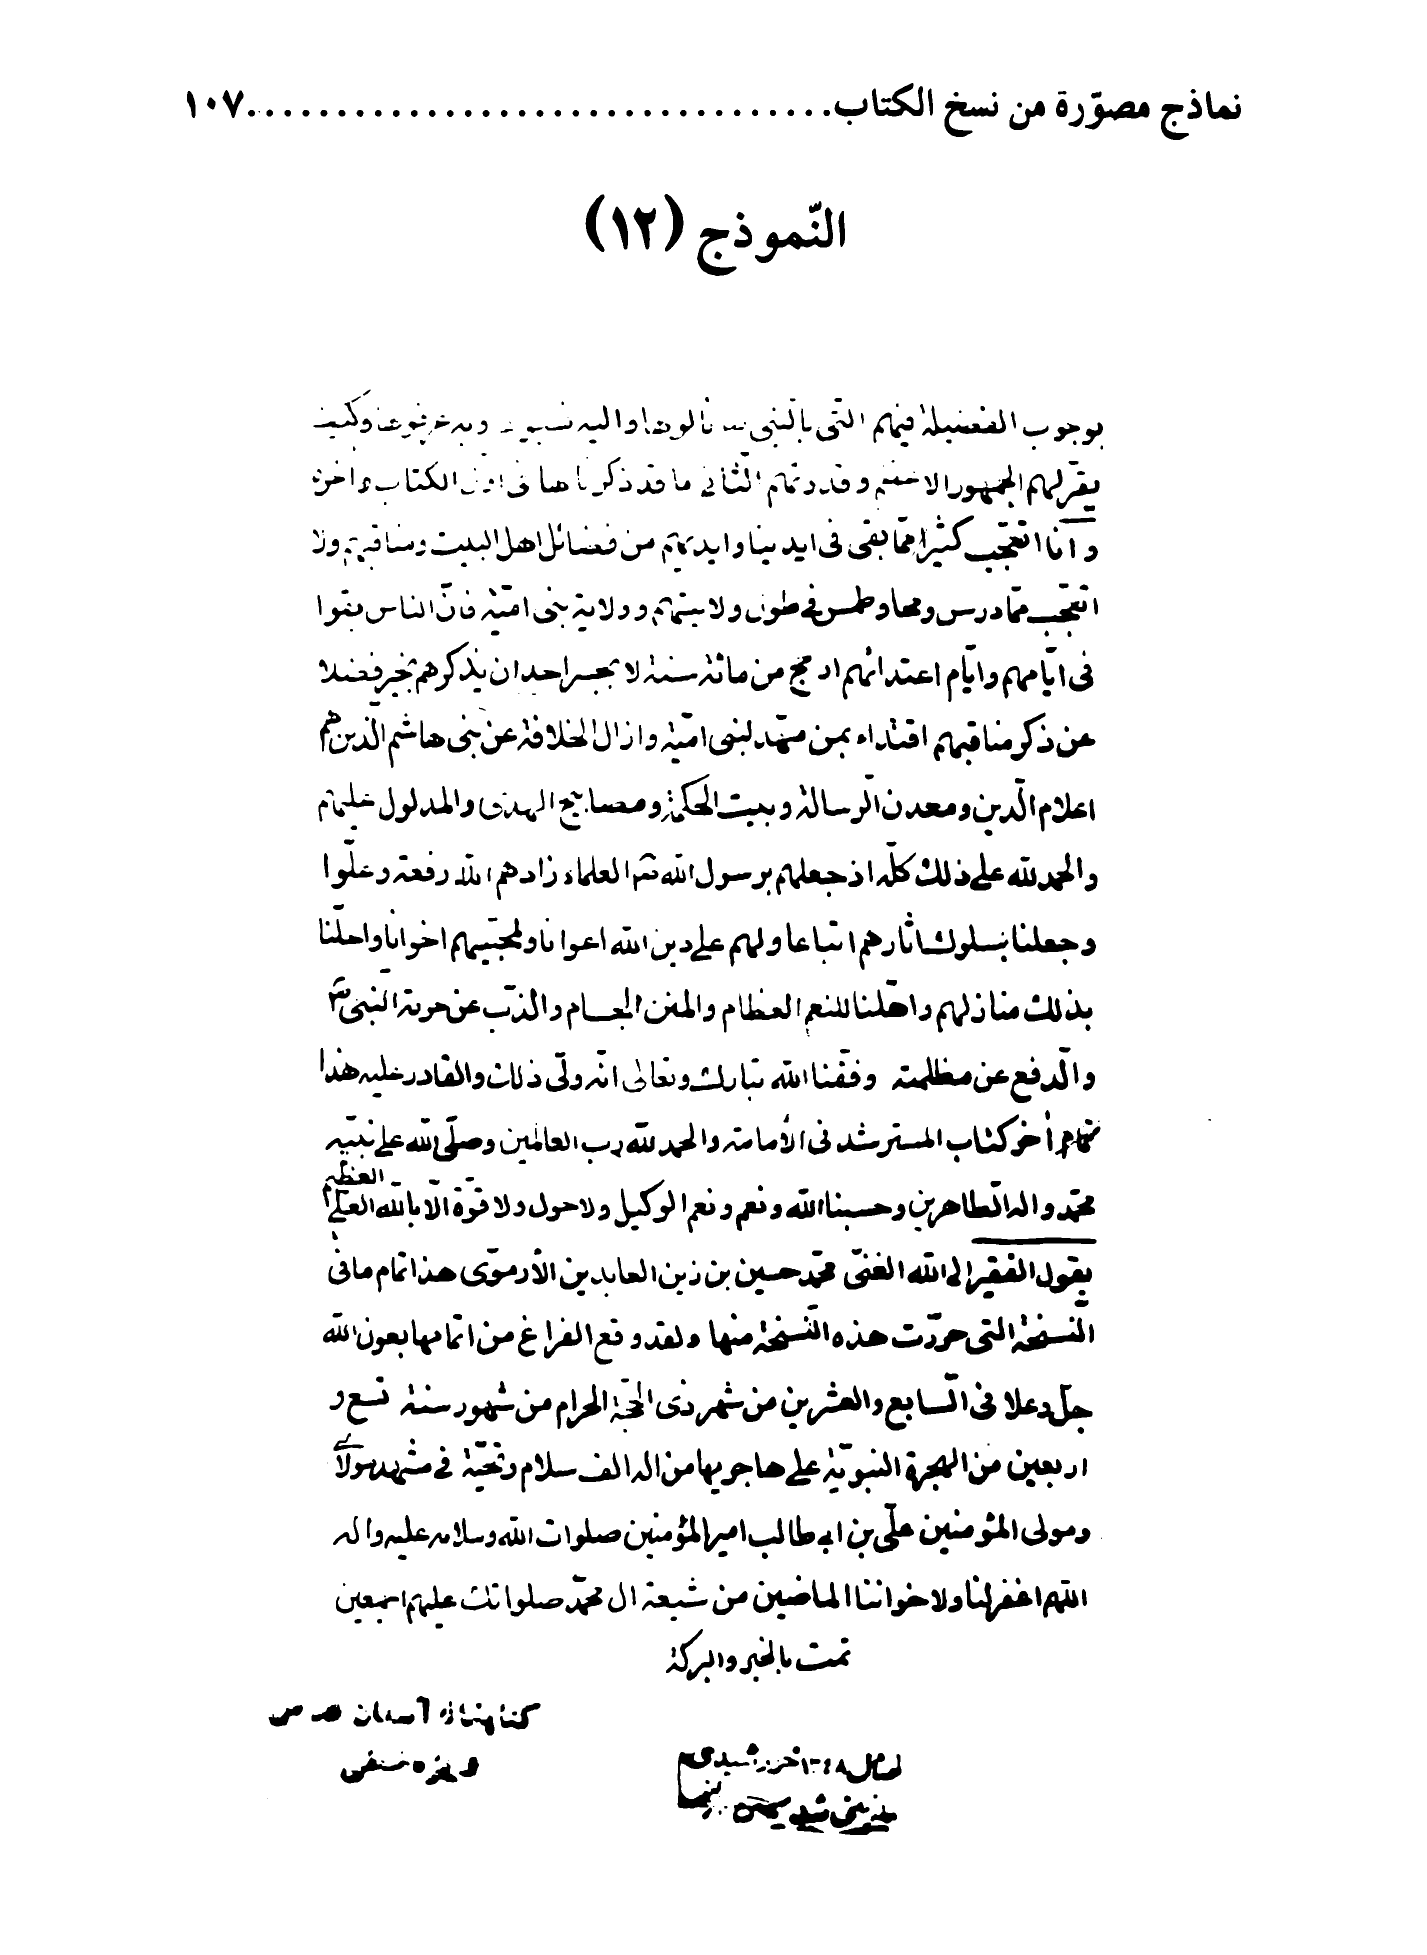 نماذج مصوّرة من نسخ الكتاب.................................١٠٧
النّموذج (١٢)
بوجوب الفضيلة فيهم التى بالنبى نالوها واليه وكيف
يقر لهم الجمهور وقد تمام الثانى ما قد ذكرنا اول الكتاب واخره
وانا اتعجّب كثيرا ممّا بقى فى ايدينا وايديهم من فضائل اهل البيت ومناقبهم ولا
اتعجّب ممّا درس ومحا وطمس فى طول ولايتهم وولاية بنى اميّة فانّ الناس بقوا
فى ايّامهم وايّام اعتدائهم ارجح من مائة سنة لا يجسر احد ان يذكرهم بخير فضلا
عن ذكر مناقبهم اقتداء بمن مهّد لبنى اميّة وازال الخلافة عن بنى هاشم الّذين هم
اعلام الّدين ومعدن الّرسالة وبيت الحكمة ومصابيح الهدى والمدلول عليهم
والحمد لله على ذلك كلّه اذ جعلهم برسول الله ثم العلماء زادهم الله رفعة وعلّوا
وجعلنا بسلوك اثارهم اتباعا ولهم على دين الله اعوانا ولمحبّيهم اخوانا واحلّنا
بذلك منازلهم واهّلنا للنعم العظام والمنن الجسام والذّب عن حرمة النّبى ص
والّدفع عن مظلمته وفّقنا الله تبارك وتعالى انّه ولّى ذلك والقادر عليه هذا
تمام أخر كتاب المسترشد فى الأمامة والحمد للّه رب العالمين وصلّى اللّه على نبيّه
محمّد واله الّطاهرين وحسبنا الله ونعم ونعم الوكيل ولا حول ولا قوّة الّا بالله العلىّ العظيم
يقول الفقير الى الله الغنىّ محمّد حسين بن زين العابدين الأرموّى هذا تمام ما فى
النّسخة التى حرّرت هذه النّسخة منها ولقد وقع الفراغ من اتمامها بعون الله
جلّ وعلا فى الّسابع والعشرين من شهر ذى الحجّة الحرام من شهور سنة تسع و
اربعين من الهجرة النبويّة على هاجريها من اله الف سلام وتحيّة فى مشهد مولاى
ومولى المؤمنين علّى بن ابى طالب امير المؤمنين صلوات الله وسلامه عليه واله
اللّهم اغفر لنا ولاخواننا الماضين من شيعة ال محمّد صلواتك عليهم اجمعين
تمت بالخير والبركة
كتابخانه آستان قدس
١٣٤٨